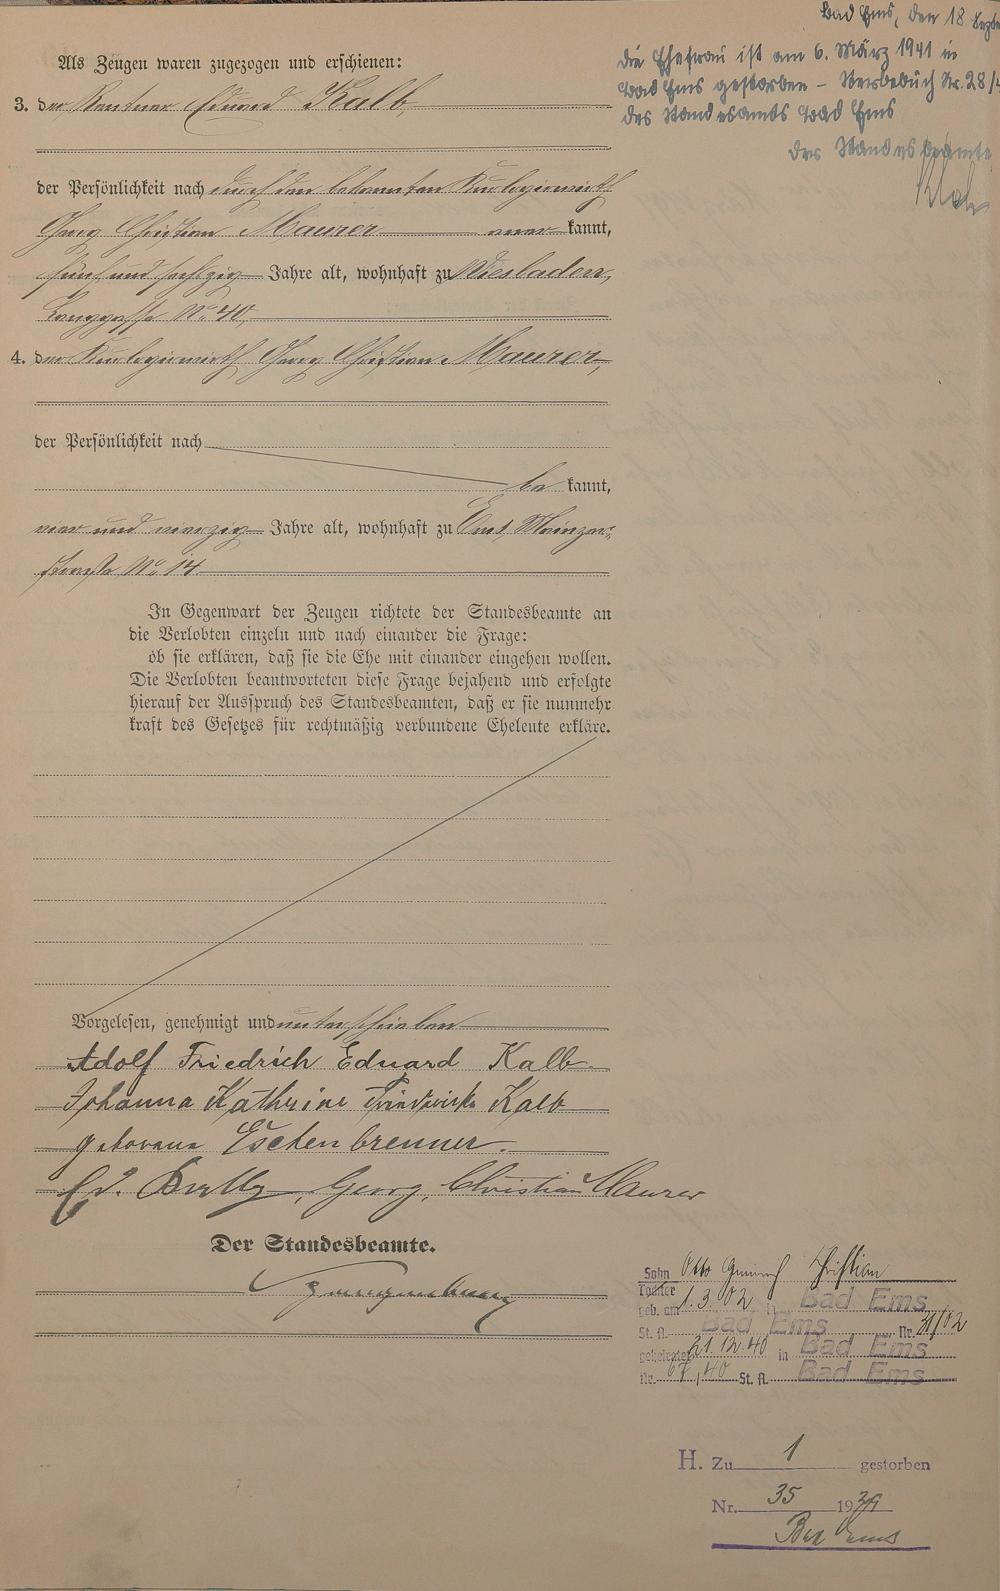 Bad Ems, den 18
die Ehefrau ist am 6. März 1941 in
Bad Ems gestorben – Sterbebuch Nr. 28/
des Standesamts Bad Ems
Der Standesbeamte
Als Zeugen waren zugezogen und erschienen:
3. der Rentner Eduard Kalb,
der Persönlichkeit nach durch den bekannten Kurlogierwirth
Georg Christian Maurer aner kannt,
fünf und sechzig Jahre alt, wohnhaft zu Wiesbaden,
Langgasse No 40,
4. der Kurlogierwirth Georg Christian Maurer,
der Persönlichkeit nach
be kannt,
vier und vierzig Jahre alt, wohnhaft zu Ems, Mainzer-
strasse No 14.
In Gegenwart der Zeugen richtete der Standesbeamte an
die Verlobten einzeln und nach einander die Frage:
ob sie erklären, daß sie die Ehe mit einander eingehen wollen.
Die Verlobten beantworteten diese Frage bejahend und erfolgte
hierauf der Ausspruch des Standesbeamten, daß er sie nunmehr
kraft des Gesetzes für rechtmäßig verbundene Eheleute erkläre.
Vorgelesen, genehmigt und unterschrieben
Adolf Friedrich Eduard Kalb.
Johanna Kathrine Friederike Kalb
geborene Eschenbrenner.
Ed. Kalb, Georg Christian Maurer
Der Standesbeamte.
Sohn Otto Christian
Tochter
geb. am 1.3.02 in Bad Ems
St. A. Bad Ems Nr. 31/02
geheiratet 21.12.40 in Bad Ems
Nr. 67/40 St. A. Bad Ems
H. Zu 1 gestorben
Nr. 35 1939
Bad Ems